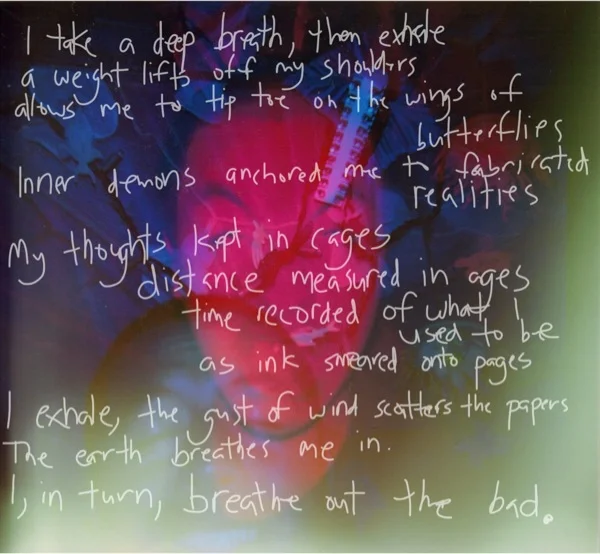 I take a deep breath, then exhale
a weight lifts off my shoulders
allows me to tip toe on the wings of
butterflies
Inner demons anchored me to fabricated
realities
My thoughts kept in cages
distance measured in ages
time recorded of what I
used to be
as ink smeared onto pages
I exhale, the gust of wind scatters the papers
The earth breathes me in.
I, in turn, breathe out the bad.